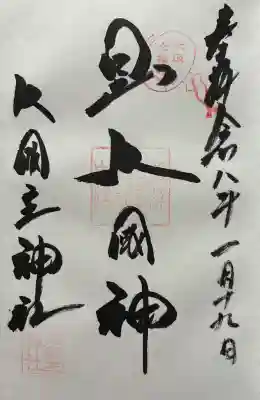 奉拝 令和八年一月十九日
日出大國神
大國主神社